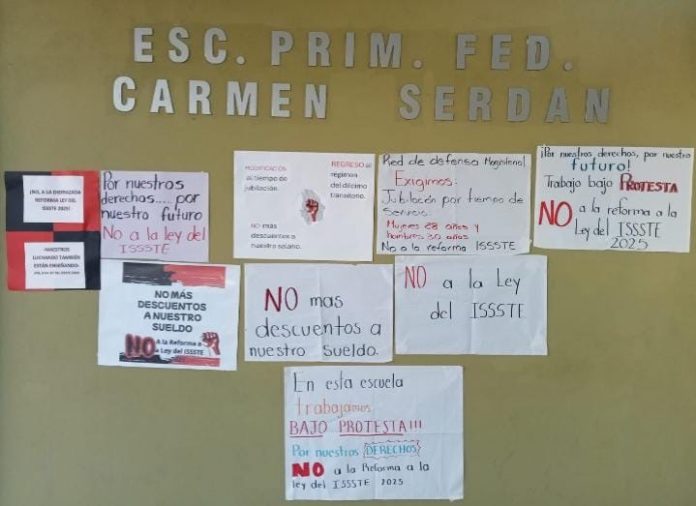 ESC. PRIM. FED.
CARMEN SERDAN
¡NO, A LA
REFORMA LEY DEL
ISSSTE 2025!
¡MAESTROS
LUCHANDO TAMBIÉN
ESTÁN ENSEÑANDO!
Por nuestros
derechos.... por
nuestro futuro
No a la ley del
ISSSTE
MODIFICACIÓN
al tiempo de
jubilación.
REGRESO al
régimen
del décimo
transitorio.
NO más
descuentos a
nuestro salario.
Red de defensa Magisterial
Exigimos:
Jubilación por tiempo de
servicio.
Mujeres 28 años y
hombres 30 años
No a la reforma ISSSTE
¡Por nuestros derechos, por nuestro
futuro!
Trabajo bajo PROTESTA
NO a la reforma a la
Ley del ISSSTE
2025
NO MÁS
DESCUENTOS
A NUESTRO
SUELDO
NO A la Reforma a
la Ley del ISSSTE
NO mas
descuentos a
nuestro Sueldo.
NO a la Ley
del ISSSTE
En esta escuela
trabajamos
BAJO PROTESTA!!!
Por nuestros DERECHOS
NO a la Reforma a la
ley del ISSSTE 2025